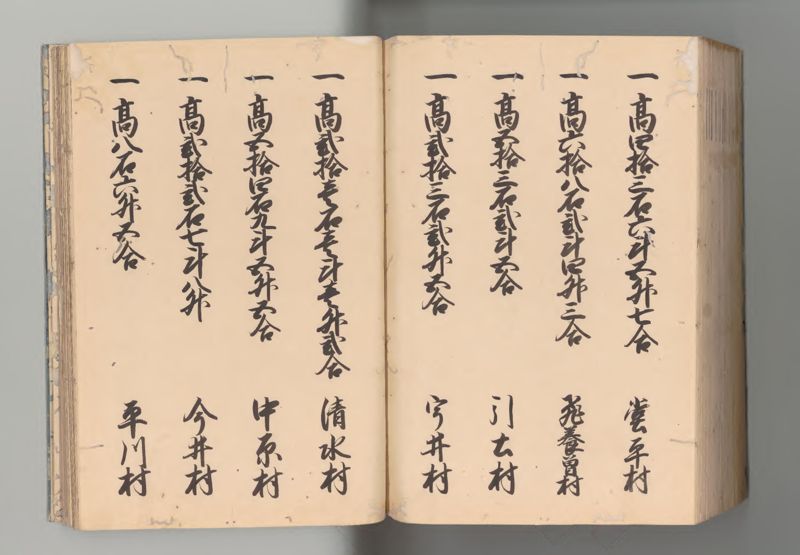 一 高四拾三石六斗五升七合 堂平村
一 高六拾八石弐斗四升三合 飛養曽村
一 高五拾三石弐斗五合 引土村
一 高弐拾三石弐升五合 宇井村
一 高弐拾壱石壱斗壱升弐合 清水村
一 高五拾四石九斗五升五合 中原村
一 高弐拾弐石七斗八升 今井村
一 高八石六升五合 平川村